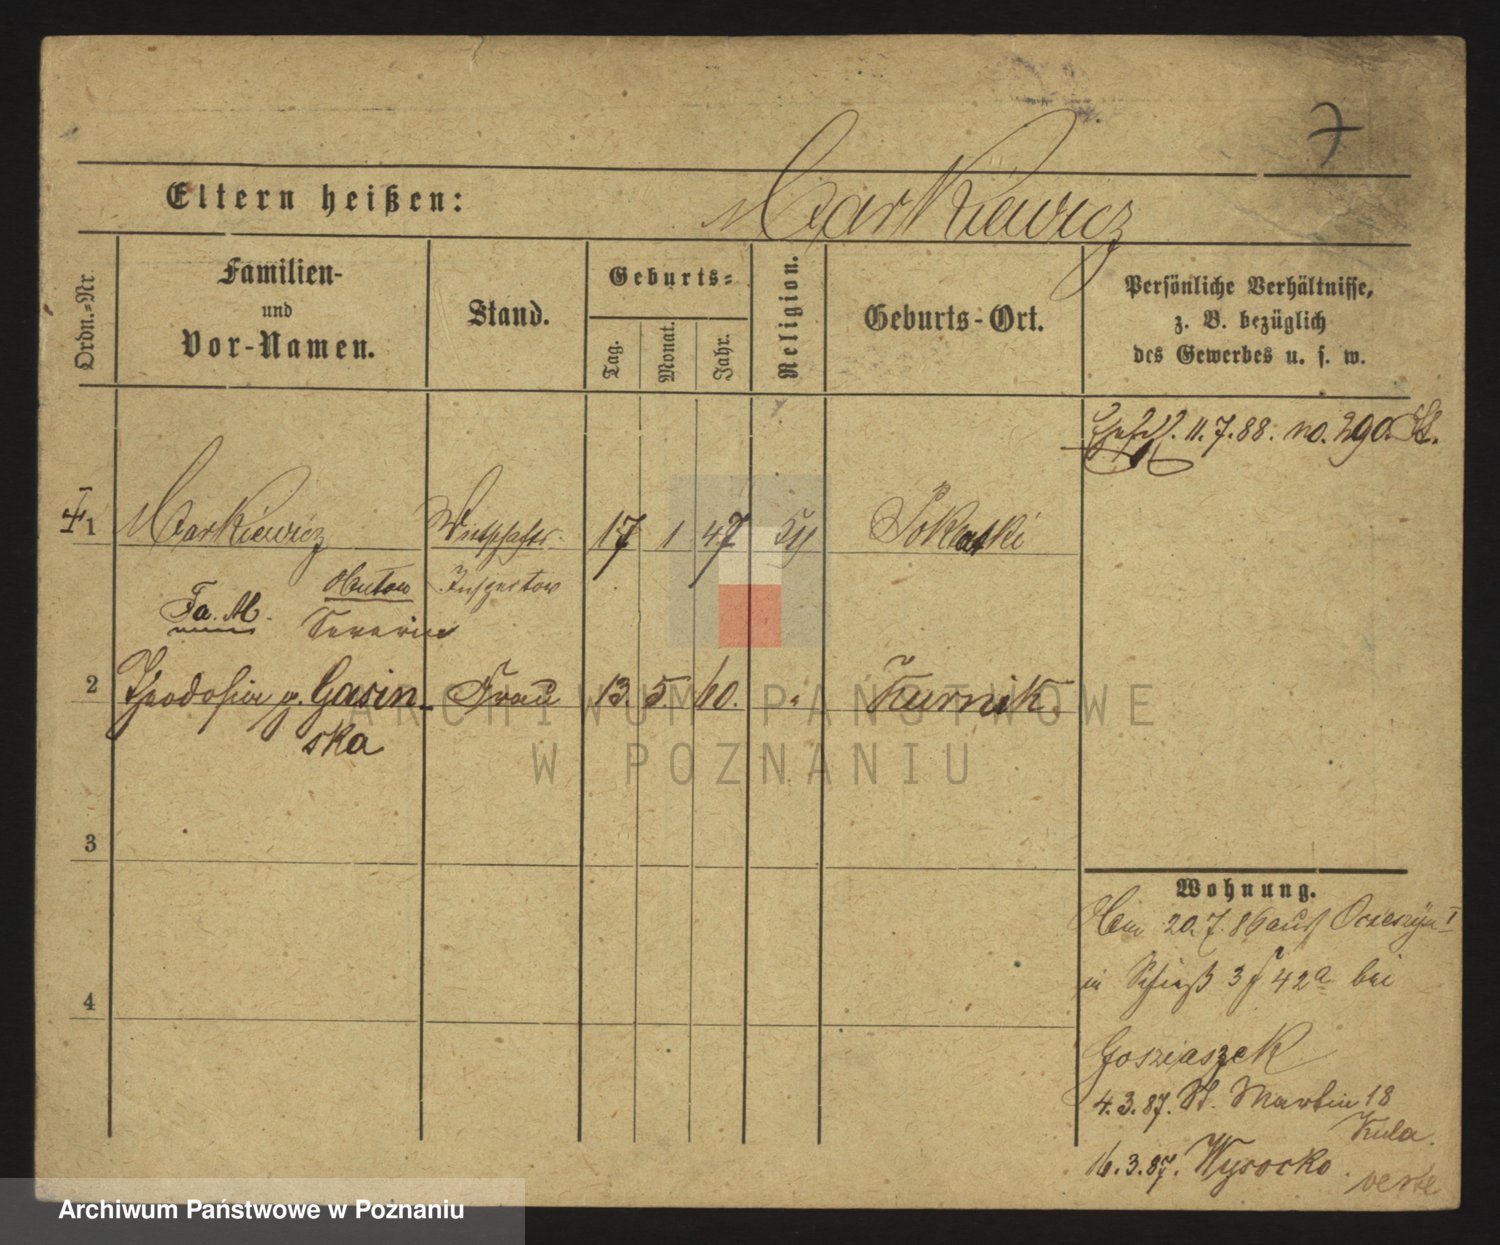 7
Eltern heißen: Markiewicz
Ordn.-Nr.
Familien-
und
Vor-Namen.
Stand.
Geburts-
Tag.
Monat.
Jahr.
Religion.
Geburts-Ort.
Persönliche Verhältnisse,
z. B. bezüglich
des Gewerbes u. s. w.
11.7.88. no. 290
1 Markiewicz Wirthschafts- 17 1 47
Inspector
Severin
2 Theodosia g. Gasin- Frau 13. 5. 60. " Kurnik
ska
3
4
Wohnung.
20.7.86 aus
in Schieß 3 42a bei
4.3.87. St. Martin 18
Kula.
16.3.87. Wysocko.
verte
ARCHIWUM PAŃSTWOWE
W POZNANIU
Archiwum Państwowe w Poznaniu